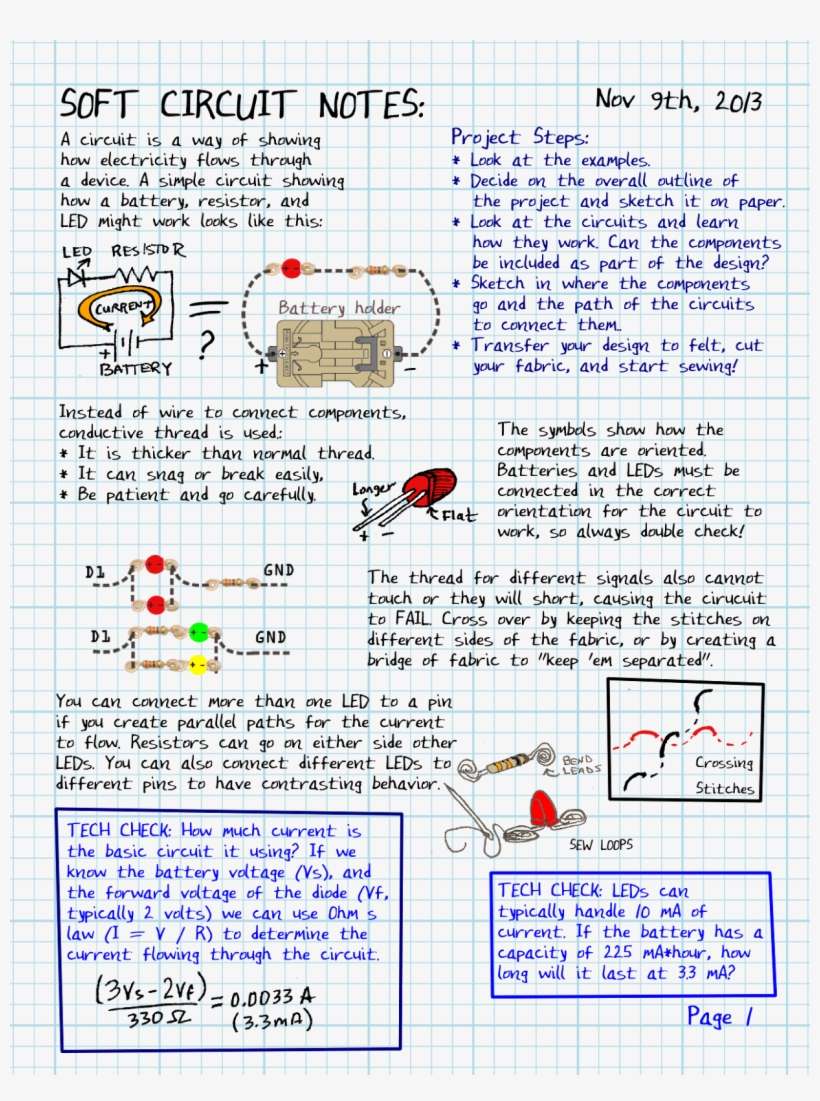 SOFT CIRCUIT NOTES:
Nov 9th, 2013
A circuit is a way of showing
how electricity flows through
a device. A simple circuit showing
how a battery, resistor, and
LED might work looks like this:
LED RESISTOR
CURRENT
+
BATTERY
=
?
Battery holder
+
-
+ -
Project Steps:
* Look at the examples.
* Decide on the overall outline of
the project and sketch it on paper.
* Look at the circuits and learn
how they work. Can the components
be included as part of the design?
* Sketch in where the components
go and the path of the circuits
to connect them.
* Transfer your design to felt, cut
your fabric, and start sewing!
Instead of wire to connect components,
conductive thread is used:
* It is thicker than normal thread.
* It can snag or break easily,
* Be patient and go carefully.
Longer
Flat
+ -
The symbols show how the
components are oriented.
Batteries and LEDs must be
connected in the correct
orientation for the circuit to
work, so always double check!
D1 + - GND
D1 + - GND
+ -
The thread for different signals also cannot
touch or they will short, causing the cirucuit
to FAIL. Cross over by keeping the stitches on
different sides of the fabric, or by creating a
bridge of fabric to "keep 'em separated".
You can connect more than one LED to a pin
if you create parallel paths for the current
to flow. Resistors can go on either side other
LEDs. You can also connect different LEDs to
different pins to have contrasting behavior.
BEND
LEADS
SEW LOOPS
Crossing
Stitches
TECH CHECK: How much current is
the basic circuit it using? If we
know the battery voltage (Vs), and
the forward voltage of the diode (Vf,
typically 2 volts) we can use Ohm s
law (I = V / R) to determine the
current flowing through the circuit.
(3Vs-2Vf)
330 Ω
= 0.0033 A
(3.3mA)
TECH CHECK: LEDs can
typically handle 10 mA of
current. If the battery has a
capacity of 225 mA*hour, how
long will it last at 3.3 mA?
Page 1